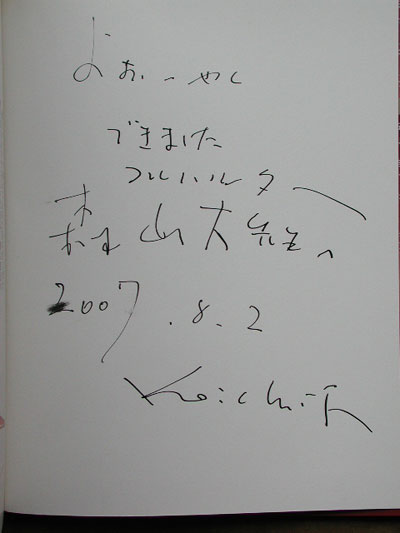 よおーやく
できました
フルハルター
森山大先生へ
2007.8.2
Koichi